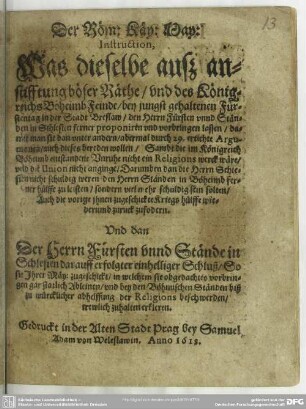 13
Der Röm: Käy: May:
Instruction,
Was dieselbe auß an-
stifftung böser Räthe/ vnd des König-
reichs Böheimb Feinde/ bey jungst gehaltenen Für-
stentag in der Stadt Breßlaw/ den Herrn Fürsten vnnd Stän-
den in Schlesien ferner proponirn vnd vorbringen lassen/
man sie dan vnter andern/ abermal durch 29. Argu-
menta/ nach dieses bereden wollen/ Sambt die im Königreich
Böheimb entstandene Unruhe nicht ein Religions werck wäre/
vnd die Union nicht anginge/ Darumben dan die Herrn Schle-
sier nicht schuldig weren den Herrn Ständen in Böheimb fer-
ner hülffe zu leisten/ sondern viel mehr schuldig sein solten/
Auch die vorige jhnen zugeschickte Kriegs hülffe wi-
derumb zuruck zufodern.
Und dan
Der Herrn Fürsten vnnd Stände in
Schlesien darauff erfolgter einhelliger Schluß/ So
sie Jhrer Käy: zugeschickt/ in welchem sie obgedachtes vorbrin-
gen gar stadlich Ableinen/ vnd bey den Böhmischen Ständen biß
zu würcklicher abhelffung der Religions beschwerden/
trewlich zuhalten erkleren.
Gedruckt in der Alten Stadt Prag bey Samuel
Adam von Weleslawin. Anno 1618.